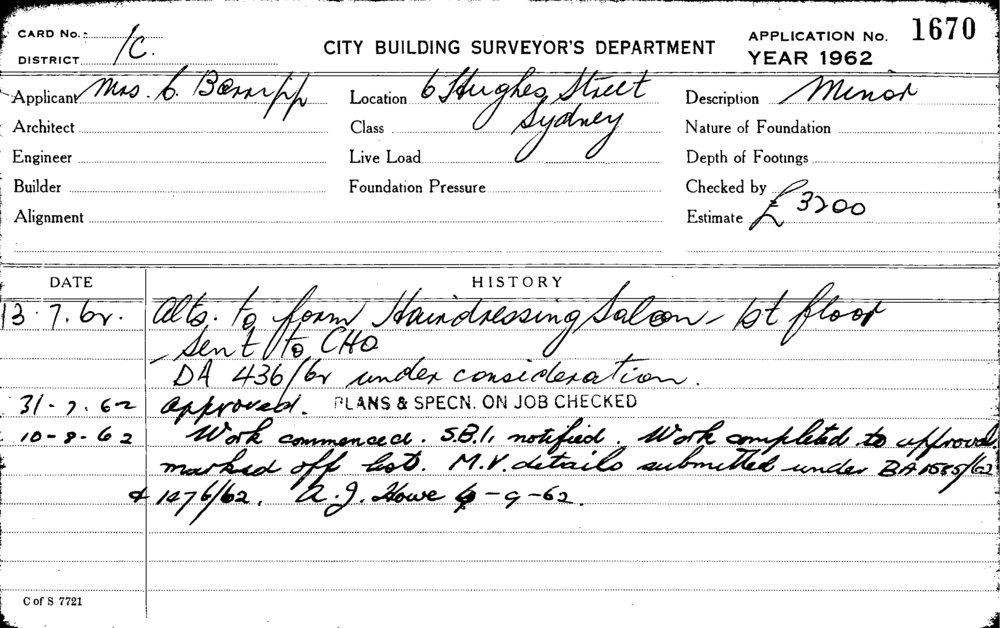 CARD No. 
DISTRICT 1C.
CITY BUILDING SURVEYOR'S DEPARTMENT
APPLICATION No. 1670
YEAR 1962
Applicant Mrs. C.
Location 6 Hughes Street
Sydney
Description Minor
Architect
Class
Nature of Foundation
Engineer
Live Load
Depth of Footings
Builder
Foundation Pressure
Checked by
Alignment
Estimate £3200
DATE
HISTORY
13.7.62. Alts. to form Hairdressing Saloon - 1st floor
- Sent to CHO
DA 436/62 under consideration.
31-7-62 Approved. PLANS & SPECN. ON JOB CHECKED
10-8-62 Work commenced. S.B.I. notified. Work completed to approval
marked off list. M.V. details submitted under BA 1585/62
& 1476/62. A.J. Howe 6-9-62.
C of S 7721